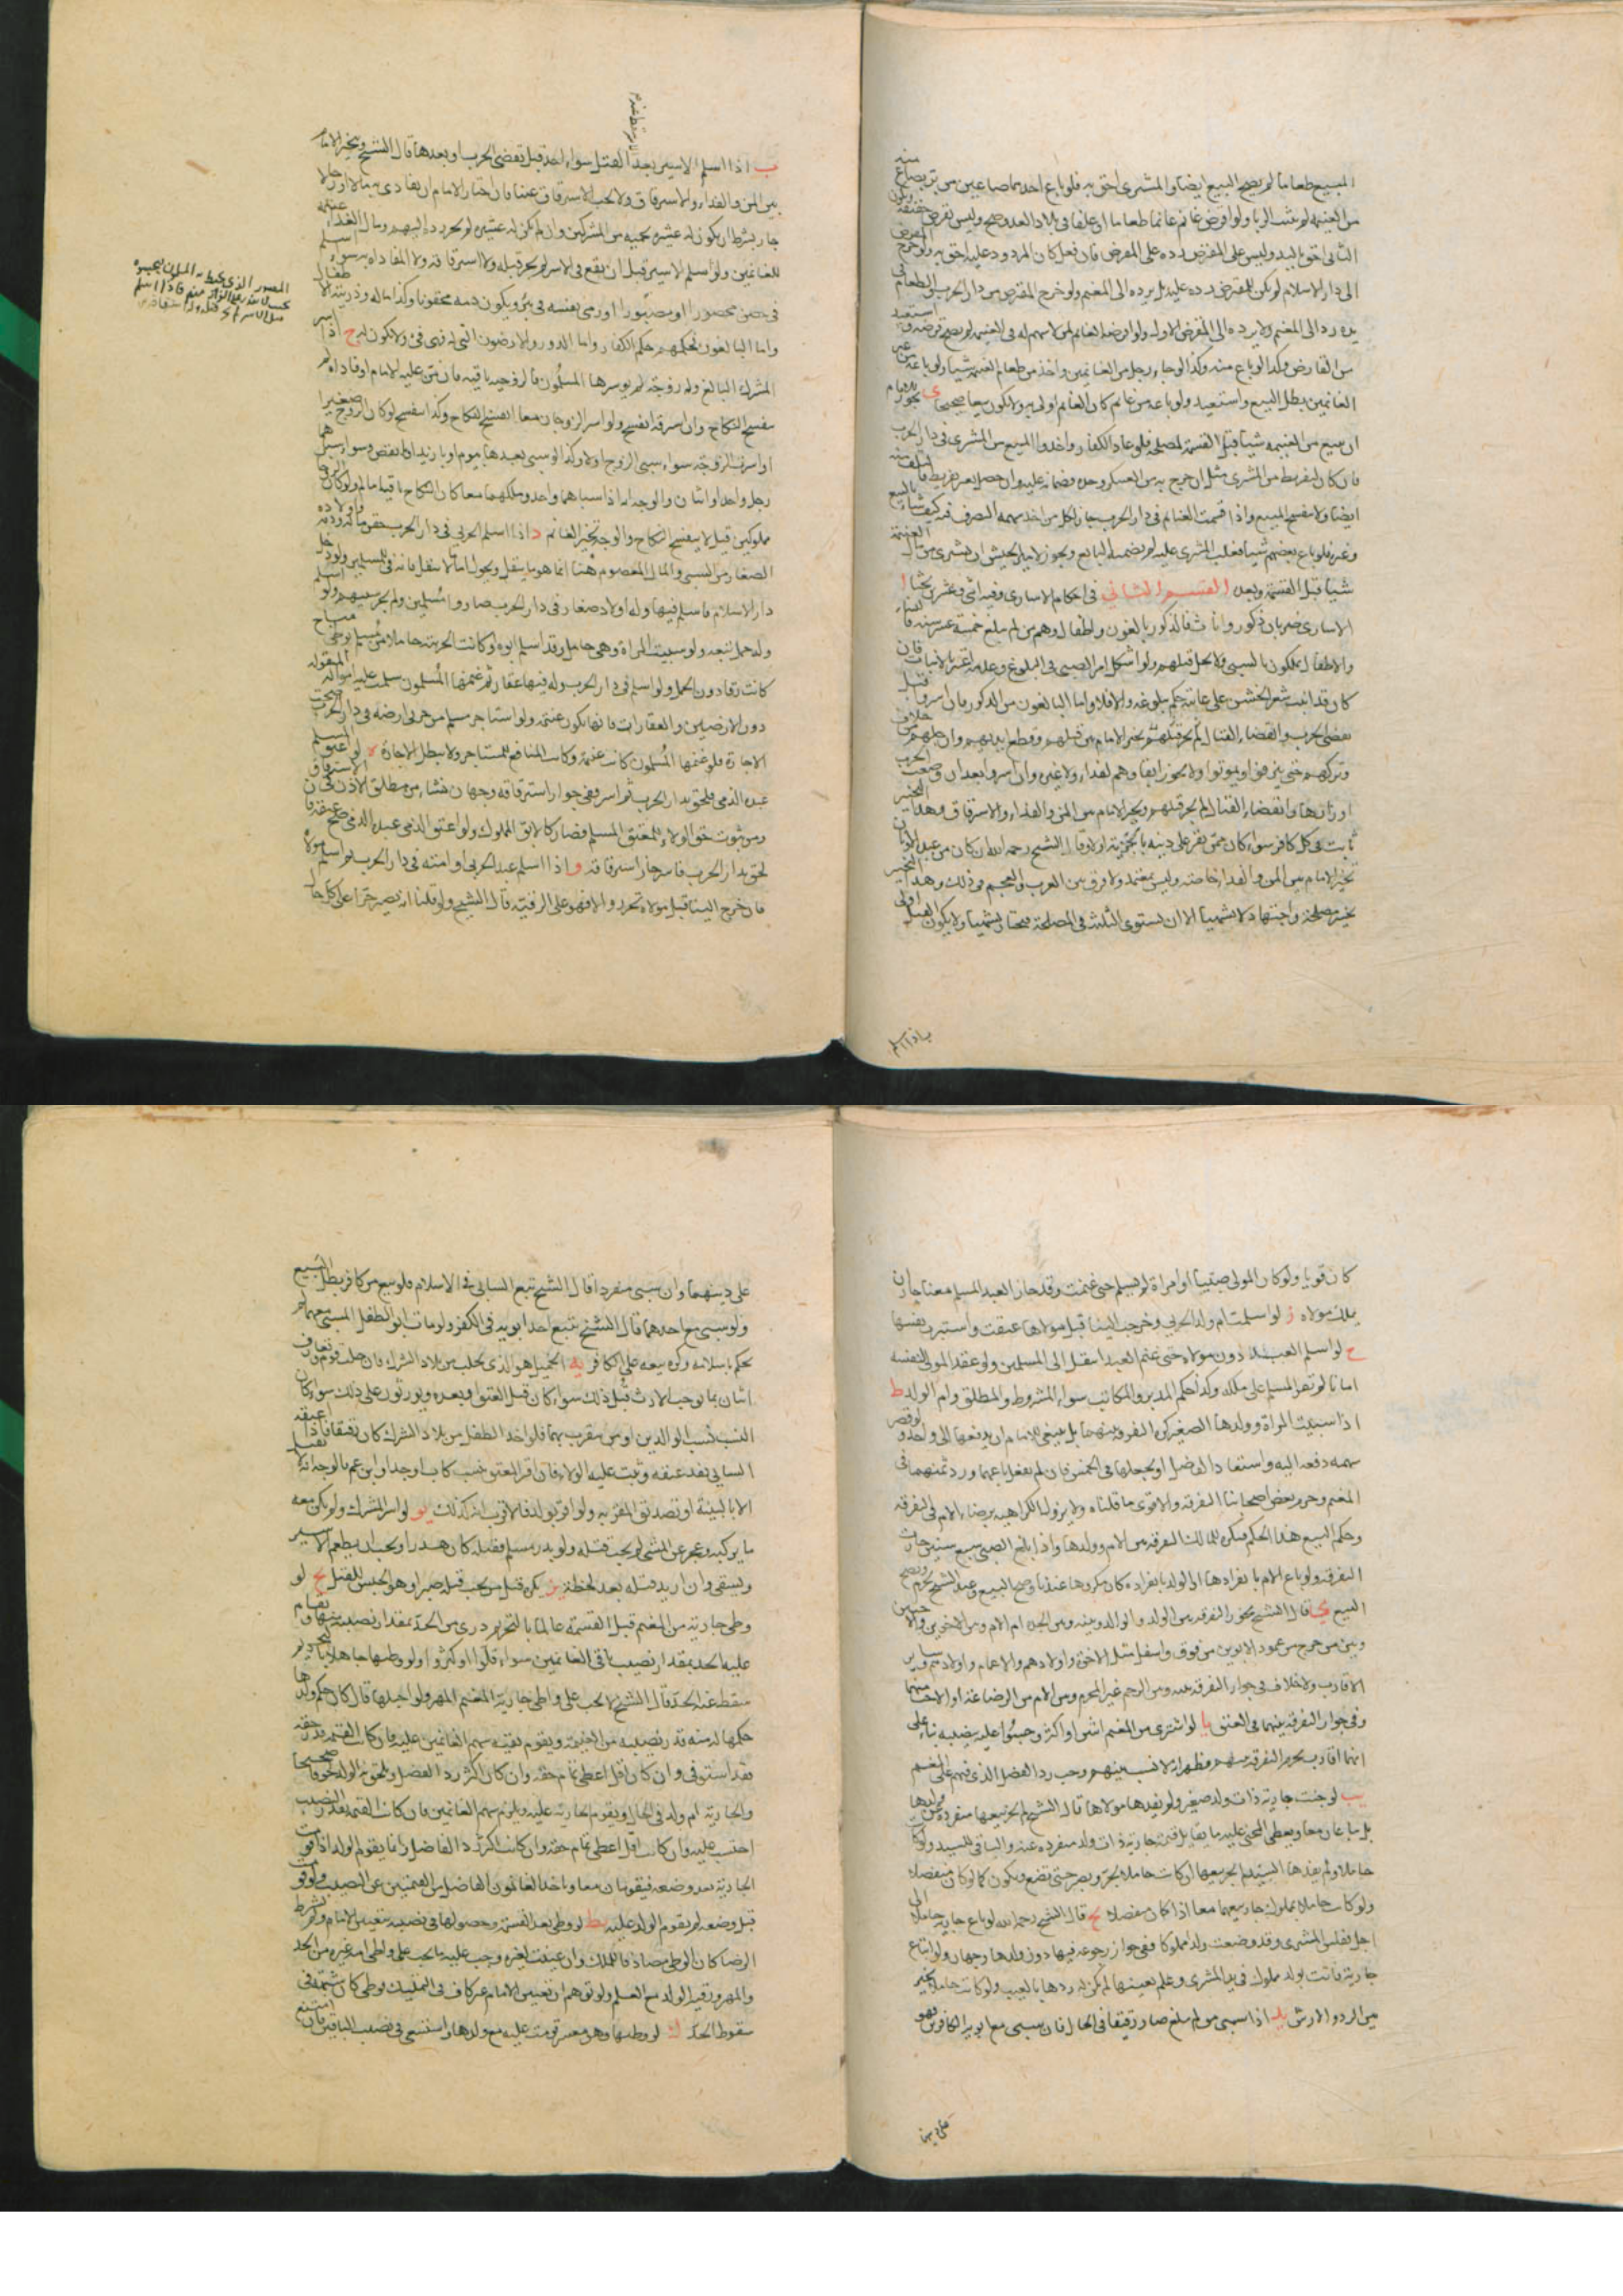 المبيع طعاما لم يصح البيع ايضا والمشترى احق به فلو باع احدهما صاعين من بر بصاع منه
من الغنيمة لم يثبت الربا ولو اقرض غانم غانما طعاما او علفا فى بلاد العدو صح وليس بقرض حقيقة
الثانى احق باليد وليس على المقترض رده على المقرض فان فعل كان المردود عليه احق به ولو خرج المقرض
الى دار الاسلام لم يكن للمقرض رده عليه بل يرده الى المغنم ولو خرج المقترض من دار الحرب والطعام فى
يده رد الى المغنم ولا يرده الى المقرض الاول ولو اقرضه الغانم لمن لا سهم له فى الغنيمة لم يصح قرضه و استعيد
من القارض وكذا لو باع منه وكذا لو جاء رجل من الغانمين واخذ من طعام الغنيمة شيئا ولو باعه من غير
الغانمين بطل البيع واستعيد ولو باعه من غانم كان الغانم اولى به ولا يكون بيعا صحيحا ى يجوز للامام
ان يبيع من الغنيمة شيئا قبل القسمة لمصلحة فلو عاد الكفار واخذوا المبيع من المشترى فى دار الحرب
فان كان لتفريط من المشترى مثل ان خرج به من العسكر وحده فضمانه عليه وان حصل بغير تفريط فا لتلف منه
ايضا ولا ينفسخ البيع واذا قسمت الغنائم فى دار الحرب جاز لكل من اخذ سهمه التصرف فيه كيف شاء بالبيع
وغيره فلو باع بعضهم شيئا فغلب المشترى عليه لم يضمنه البايع ويجوز لامير الجيش ان يشترى من مال الغنيمة
شيئا قبل القسمة وبعده القسم الثانى فى احكام الاسارى وفيه اثنى وعشرون بحثا ا
الاسارى ضربان ذكور واناث فالذكور بالغون واطفال وهم من لم يبلغ خمسة عشر سنة فالنساء
والاطفال يملكون بالسبى ولا يحل قتلهم ولو اشكل امر الصبى فى البلوغ وعدمه اعتبر بالانبات فان
كان قد انبت شعر الخشن على عانته حكم ببلوغه والا فلا واما البالغون من الذكور فان اسروا قبل
تقضى الحرب وانقضاء القتال لم يجز بقاؤهم ويتخير الامام بين قتلهم وقطع ايديهم وارجلهم من خلاف
وتركهم حتى ينزفوا ويموتوا ولا يجوز ابقاؤهم لفداء ولا غيره وان اسروا بعد ان وضعت الحرب
اوزارها وانقضاء القتال لم يجز قتلهم ويتخير الامام بين المن والفداء والاسترقاق وهذا التخيير
ثابت فى كل كافر سواء كان ممن يقر على دينه بالجزية او لا وقال الشيخ رحمه الله ان كان من عبدة الاوثان
تخير الامام بين المن والفداء خاصة وليس بمعتمد ولا فرق بين العرب والعجم فى ذلك وهذا التخيير
تخيير مصلحة واجتهاد لا تشهيا الا ان تستوى الثلثة فى المصلحة فيختار تشهيا ولا يكون القتل اولى
ب اذا اسلم
ب اذا اسلم الاسير بعد الاسر سقط القتل سواء اخذ قبل تقضى الحرب او بعدها قال الشيخ ويتخير الامام
بين المن والفداء والاسترقاق ولا يجب الاسترقاق عينا فان اختار الامام ان يفادى به مالا او رجالا
جاز بشرط ان يكون له عشيرة تحميه من المشركين وان لم يكن له عشيرة لم يجز رده اليهم ومال الفداء غنيمة
للغانمين ولو اسلم الاسير قبل ان يقع فى الاسر لم يجز قتله ولا استرقاقه ولا المفاداة به سواء اسلم
فى حصن محصورا او مصبورا او رمى بنفسه فى بئر ويكون دمه محقونا وكذا ماله وذريته الاطفال
واما البالغون فحكمهم حكم الكفار واما الدور والارضون التى له فهى فئ ولا يكون له ج اذا اسر
المشرك البالغ وله زوجة لم يوسرها المسلمون فالزوجية باقية فان من عليه الامام او فاداه لم
ينفسخ النكاح وان استرقه انفسخ ولو اسر الزوجان معا انفسخ النكاح وكذا ينفسخ لو كان الزوج صغيرا
او استرقت الزوجة سواء سبى الزوج او لا وكذا لو سبى بعدها بيوم او بازيد او انقص وسواء سباهما
رجل واحد او اثنان والوجه انه اذا سباهما واحد وملكهما معا كان النكاح باقيا ما لم ولو كان الزوجان
مملوكين قيل لا ينفسخ النكاح والوجه تخير الغانم د اذا اسلم الحربى فى دار الحرب حقن ماله ودمه واولاده
الصغار من السبى والمال المعصوم هنا انما هو ما ينقل ويحول اما ما لا ينقل فانه فئ للمسلمين ولو دخل
دار الاسلام فاسلم فيها وله اولاد صغار فى دار الحرب صاروا مسلمين ولم يجز سبيهم ولو اسلم
وله حمل تبعه ولو سبيت المراة وهى حامل وقد اسلم ابوه وكانت الحربية حاملا من مسلم بوطئ مباح
كانت رقا دون الحمل ولو اسلم فى دار الحرب وله فيها عقار ثم غنمها المسلمون سلمت عليه امواله المنقولة
دون الارضين والعقارات فانها تكون غنيمة ولو استاجر مسلم من حربى ارضه فى دار الحرب صحت
الاجارة فلو غنمها المسلمون كانت غنيمة وكانت المنافع للمستاجر ولا تبطل الاجارة ه لو اعتق المسلم
عبده الذمى فلحق بدار الحرب ثم اسر ففى جواز استرقاقه وجهان منشاء من مطلق الاذن فى الاسترقاق
ومن ثبوت حق الولاء للمعتق المسلم فصار كالابق المملوك ولو اعتق الذمى عبده الذمى صح عتقه فا
لحق بدار الحرب فاسر جاز استرقاقه و اذا اسلم عبد الحربى او امته فى دار الحرب ثم اسلم مولاه
فان خرج الينا قبل مولاه تحرر والا فهو على الرقية قال الشيخ ولو قلنا انه يصير حرا على كل حال
كان قويا ولو كان المولى صبيا او امراة لم يسلم حتى غنمت وقد حاز العبد المسلم معنا جاز ان
يملك مولاه ز لو اسلمت ام ولد الحربى وخرجت الينا قبل مولاها عتقت واستبرت نفسها
ح لو اسلم العبد دون مولاه حتى غنم العبد انتقل الى المسلمين ولو عقد المولى لنفسه
امانا لم يقر المسلم على ملكه وكذا حكم المدبر والمكاتب سواء المشروط والمطلق وام الولد ط
اذا سبيت المراة وولدها الصغير كره التفرقة بينهما بل ينبغى للامام ان يدفعهما الى واحد ولو قصر
سهمه دفعه اليه واستعاد الفاضل او يجعلها فى الخمس فان لم يفعل باعهما ورد ثمنهما فى
المغنم وحرم بعض اصحابنا التفرقة والاقوى ما قلناه ولا يزول الكراهية برضاء الام فى التفرقة
وحكم البيع هذا الحكم فيكره للمالك التفرقة بين الام وولدها واذا بلغ الصبى سبع سنين جازت
التفرقة ولو باع الام بانفرادها او الولد بانفراده كان مكروها عندنا وصح البيع وعند الشيخ يحرم ويصح
البيع ى قال الشيخ يجوز التفرقة بين الولد والوالد وبينه وبين الجدة ام الام وبين الاخوين والاختين
وبين من خرج من عمود الابوين من فوق واسفل مثل الاخوة واولادهم والاعمام واولادهم وساير
الاقارب ولا خلاف فى جواز التفرقة بينه وبين الرحم غير المحرم وبين الام من الرضاعة او الاخت منها
وفى جواز التفرقة بينهما فى العتق يا لو اشترى من المغنم اثنين او اكثر وحسبوا عليه بنصيبه بناء على
انها اقارب يحرم التفرقة بينهم فظهر انه لا نسب بينهم وجب رد الفضل الذى فيهم على المغنم
يب لو جنت جارية ذات ولد صغير ولم يفدها مولاها قال الشيخ لم يجز بيعها منفردة عن ولدها
بل يباعان معا ويعطى المجنى عليه ما يقابل قيمة جارية ذات ولد منفردة عنه والباقى للسيد ولو كانت
حاملا ولم يفدها السيد لم يجز بيعها ان كانت حاملا بحر ويصبر حتى تضع ويكون كما لو كان منفصلا
ولو كانت حاملا بمملوك جاز بيعهما معا اذا كان منفصلا يج قال الشيخ رحمه الله لو باع جارية حاملا الى
اجل ففلس المشترى وقد وضعت ولدا مملوكا ففى جواز رجوعه فيها دون ولدها وجهان ولو ابتاع
جارية فاتت بولد مملوك فى يد المشترى وعلم بعيبها لم يكن له ردها بالعيب ولو كانت حاملا تخير
بين الرد والارش يد اذا سبى من لم يبلغ صار رقيقا فى الحال فان سبى مع ابويه الكافرين فهو
على دينهما
على دينهما وان سبى منفردا قال الشيخ تبع السابى فى الاسلام فلو بيع من كافر بطل البيع
ولو سبى مع احدهما قال الشيخ يتبع احد ابويه فى الكفر ولو مات ابو الطفل المسبى معهما لم
يحكم باسلامه وكره بيعه على الكافر يه الحميل هو الذى يجلب من بلاد الشرك فان جلب قوم وتعارف
اثنان بما يوجب الارث قبل ذلك سواء كان قبل العتق او بعده ويورثون على ذلك سواء كان
النسب نسب الوالدين او من يتقرب بهما فلو اخذ الطفل من بلاد الشرك كان رقيقا فاذا اعتقه
السابى نفذ عتقه وثبت عليه الولاء فان اقر المعتق بنسب كاب او جد او ابن عم فالوجه انه لا يقبل
الا بالبينة او تصديق المقر به ولو اقر بولد فالاقرب انه كذلك يو لو اسر المشرك ولم يكن معه
ما يركبه وعجز عن المشى لم يجب قتله ولو بدر مسلم فقتله كان هدرا ويجب ان يطعم الاسير
ويسقى وان اريد قتله بعد لحظة يز يكره قتل من يجب قتله صبرا وهو الحبس للقتل يح لو
وطى جارية من المغنم قبل القسمة عالما بالتحريم درئ من الحد بمقدار نصيبه منها ويقام
عليه الحد بمقدار نصيب باقى الغانمين سواء قلوا او كثروا ولو وطيها جاهلا بالتحريم
سقط عنه الحد قال الشيخ لا يجب على واطى جارية المغنم المهر ولو احبلها قال كان حكم ولدها
حكمها له منه قدر نصيبه من الغنيمة ويقوم بقيته سهم الغانمين عليه فان كان القيمة قدر حقه
فقد استوفى وان كان اقل اعطى تمام حقه وان كان اكثر رد الفضل ويلحق به الولد لحوقا صحيحا
والجارية ام ولد فى الحال ويقوم الجارية عليه ويلزم سهم الغانمين فان كان القيمة بقدر النصيب
احتسب عليه وان كانت اقل اعطى تمام حقه وان كانت اكثر رد الفاضل وانما يقوم الولد اذا قومت
الجارية بعد وضعه فيقومان معا وياخذ الغانمون الفاضل من القيمتين عن النصيب ولو قومت
قبل وضعه لم يقوم الولد عليه يط لو وطى بعد القسمة وحصولها فى نصيبه بتعيين الامام ولم نشترط
الرضا كان الوطى مصادفا للملك وان عينت لغيره وجب عليه ما يجب على واطى امة غيره من الحد
والمهر ورقية الولد مع العلم ولو توهم ان تعيين الامام غير كاف فى التمليك ووطى كان شبهة فى
سقوط الحد ك لو وطيها وهو معسر قومت عليه مع ولدها واستسعى فى نصيب الباقين فان امتنع